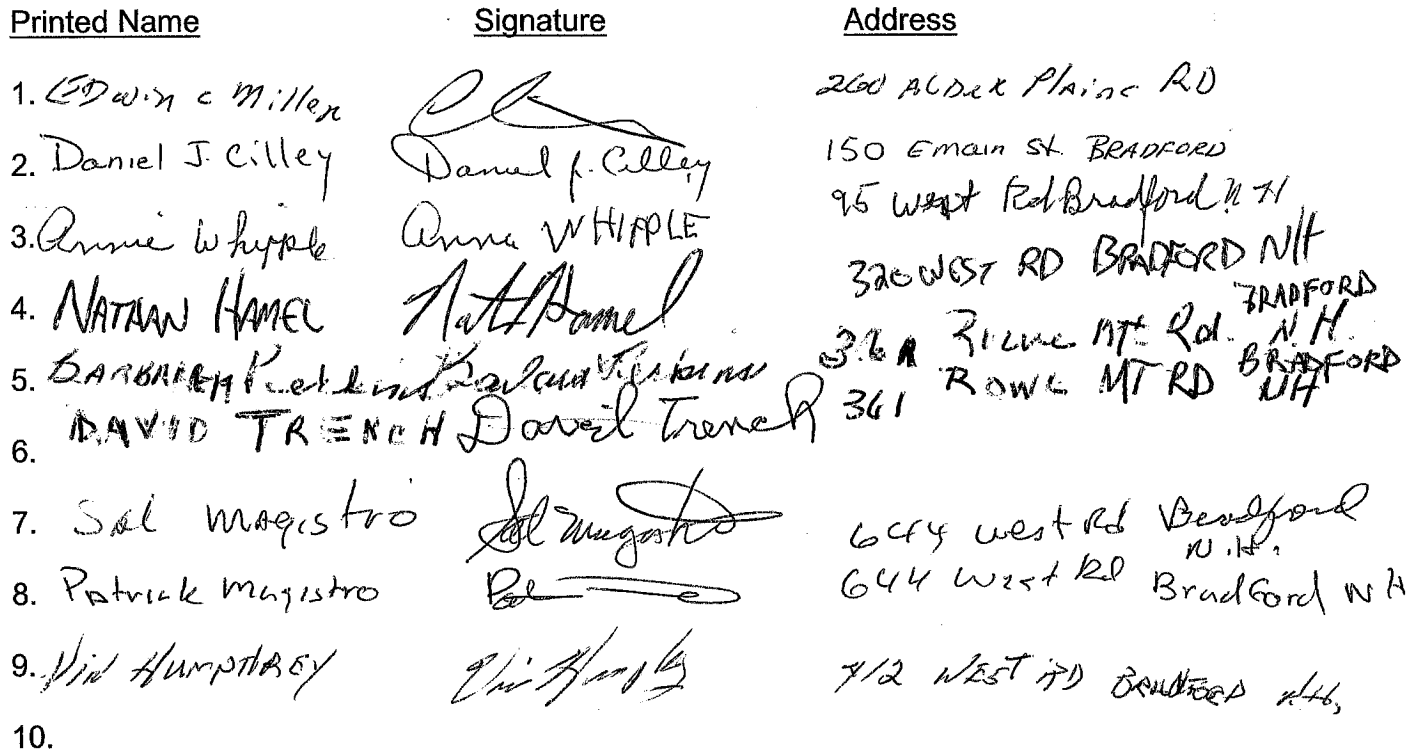 Printed Name Signature Address
1. EDwin c Miller 260 ALDER PlAins RD
2. Daniel J. Cilley Daniel J. Cilley 150 Emain St. BRADFORD
3. Annie Whipple Anna WHIPPLE 95 West Rd Bradford N H
4. NATHAN HAMEL Nat Hamel 320 WEST RD BRADFORD NH
5. BARBARA Perkins Barbara Perkins 361 Rowe Mt Rd. BRADFORD N.H.
6. DAVID TRENCH David Trench 361 ROWE MT RD BRADFORD NH
7. Sal Magistro Sal Magistro 644 West Rd Bradford N.H.
8. Patrick Magistro 644 West Rd Bradford NH
9. Vin HUMPHREY Vin 712 WEST RD BRADFORD N.H.
10.